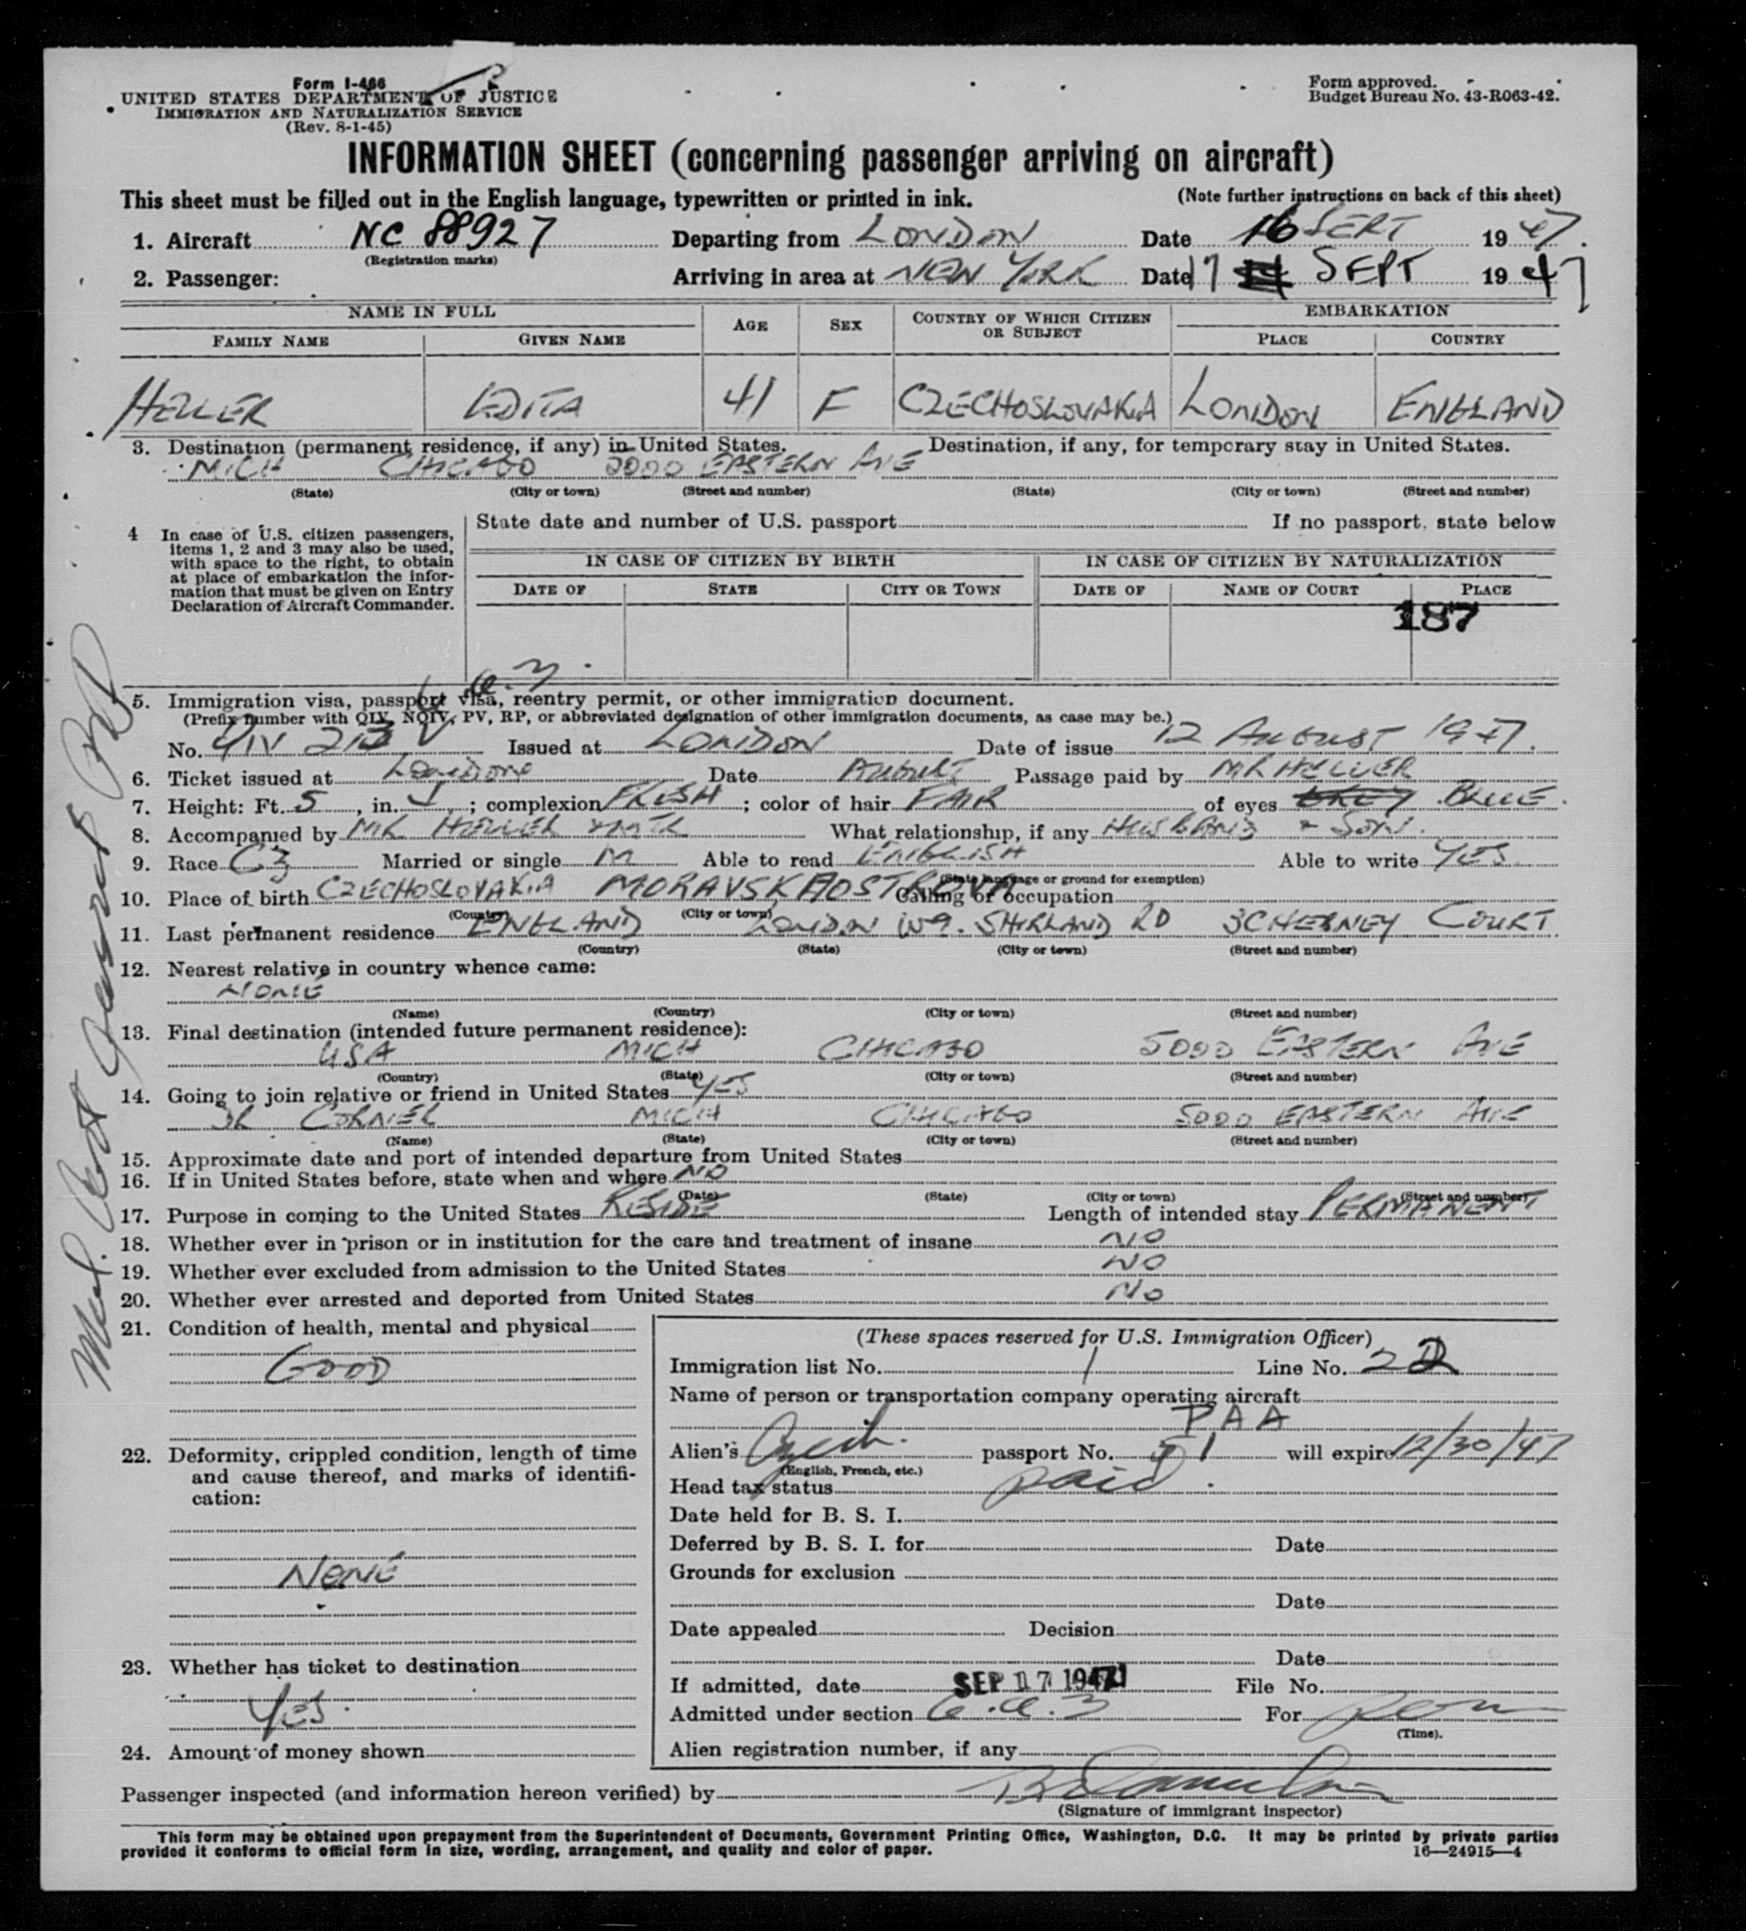 Form I-466
UNITED STATES DEPARTMENT OF JUSTICE
IMMIGRATION AND NATURALIZATION SERVICE
(Rev. 8-1-45)
Form approved.
Budget Bureau No. 43-R063-42.
INFORMATION SHEET (concerning passenger arriving on aircraft)
This sheet must be filled out in the English language, typewritten or printed in ink. (Note further instructions on back of this sheet)
1. Aircraft NC 88927 Departing from LONDON Date 16 SEPT 1947.
(Registration marks)
2. Passenger: Arriving in area at NEW YORK Date 17 SEPT 1947
NAME IN FULL AGE SEX COUNTRY OF WHICH CITIZEN OR SUBJECT EMBARKATION
FAMILY NAME GIVEN NAME PLACE COUNTRY
HELLER EDITA 41 F CZECHOSLOVAKIA LONDON ENGLAND
3. Destination (permanent residence, if any) in United States. Destination, if any, for temporary stay in United States.
MICH CHICAGO 5000 EASTERN AVE
(State) (City or town) (Street and number) (State) (City or town) (Street and number)
4 In case of U.S. citizen passengers, items 1, 2 and 3 may also be used, with space to the right, to obtain at place of embarkation the information that must be given on Entry Declaration of Aircraft Commander.
State date and number of U.S. passport If no passport, state below
IN CASE OF CITIZEN BY BIRTH IN CASE OF CITIZEN BY NATURALIZATION
DATE OF STATE CITY OR TOWN DATE OF NAME OF COURT PLACE
187
5. Immigration visa, passport visa, reentry permit, or other immigration document.
(Prefix number with QIV, NQIV, PV, RP, or abbreviated designation of other immigration documents, as case may be.)
No. QIV 213 Issued at LONDON Date of issue 12 AUGUST 1947.
6. Ticket issued at London Date AUGUST Passage paid by MR HELLER
7. Height: Ft. 5, in. ; complexion FRESH; color of hair FAIR of eyes BLUE.
8. Accompanied by MR HELLER What relationship, if any HUSBAND & SON.
9. Race CZ Married or single M Able to read ENGLISH Able to write YES
(State language or ground for exemption)
10. Place of birth CZECHOSLOVAKIA MORAVSKAOSTROVA Calling or occupation
(Country) (City or town)
11. Last permanent residence ENGLAND LONDON W9. SHIRLAND RD COURT.
(Country) (State) (City or town) (Street and number)
12. Nearest relative in country whence came:
NONE
(Name) (Country) (City or town) (Street and number)
13. Final destination (intended future permanent residence):
USA MICH CHICAGO 5000 EASTERN AVE
(Country) (State) (City or town) (Street and number)
14. Going to join relative or friend in United States YES
MICH CHICAGO 5000 EASTERN AVE
(Name) (State) (City or town) (Street and number)
15. Approximate date and port of intended departure from United States
16. If in United States before, state when and where NO
(Date) (State) (City or town) (Street and number)
17. Purpose in coming to the United States RESIDE Length of intended stay PERMANENT
18. Whether ever in prison or in institution for the care and treatment of insane NO
19. Whether ever excluded from admission to the United States NO
20. Whether ever arrested and deported from United States NO
21. Condition of health, mental and physical
GOOD
22. Deformity, crippled condition, length of time and cause thereof, and marks of identification:
NONE
23. Whether has ticket to destination
YES.
24. Amount of money shown
(These spaces reserved for U.S. Immigration Officer)
Immigration list No. 1 Line No. 22
Name of person or transportation company operating aircraft
PAA
Alien's Czech. passport No. 51 will expire 12/30/47
(English, French, etc.)
Head tax status paid.
Date held for B. S. I.
Deferred by B. S. I. for Date
Grounds for exclusion
Date
Date appealed Decision
Date
If admitted, date SEP 17 1947 File No.
Admitted under section 6.a.3 For perm
(Time).
Alien registration number, if any
Passenger inspected (and information hereon verified) by
(Signature of immigrant inspector)
This form may be obtained upon prepayment from the Superintendent of Documents, Government Printing Office, Washington, D.C. It may be printed by private parties
provided it conforms to official form in size, wording, arrangement, and quality and color of paper. 16—24915—4